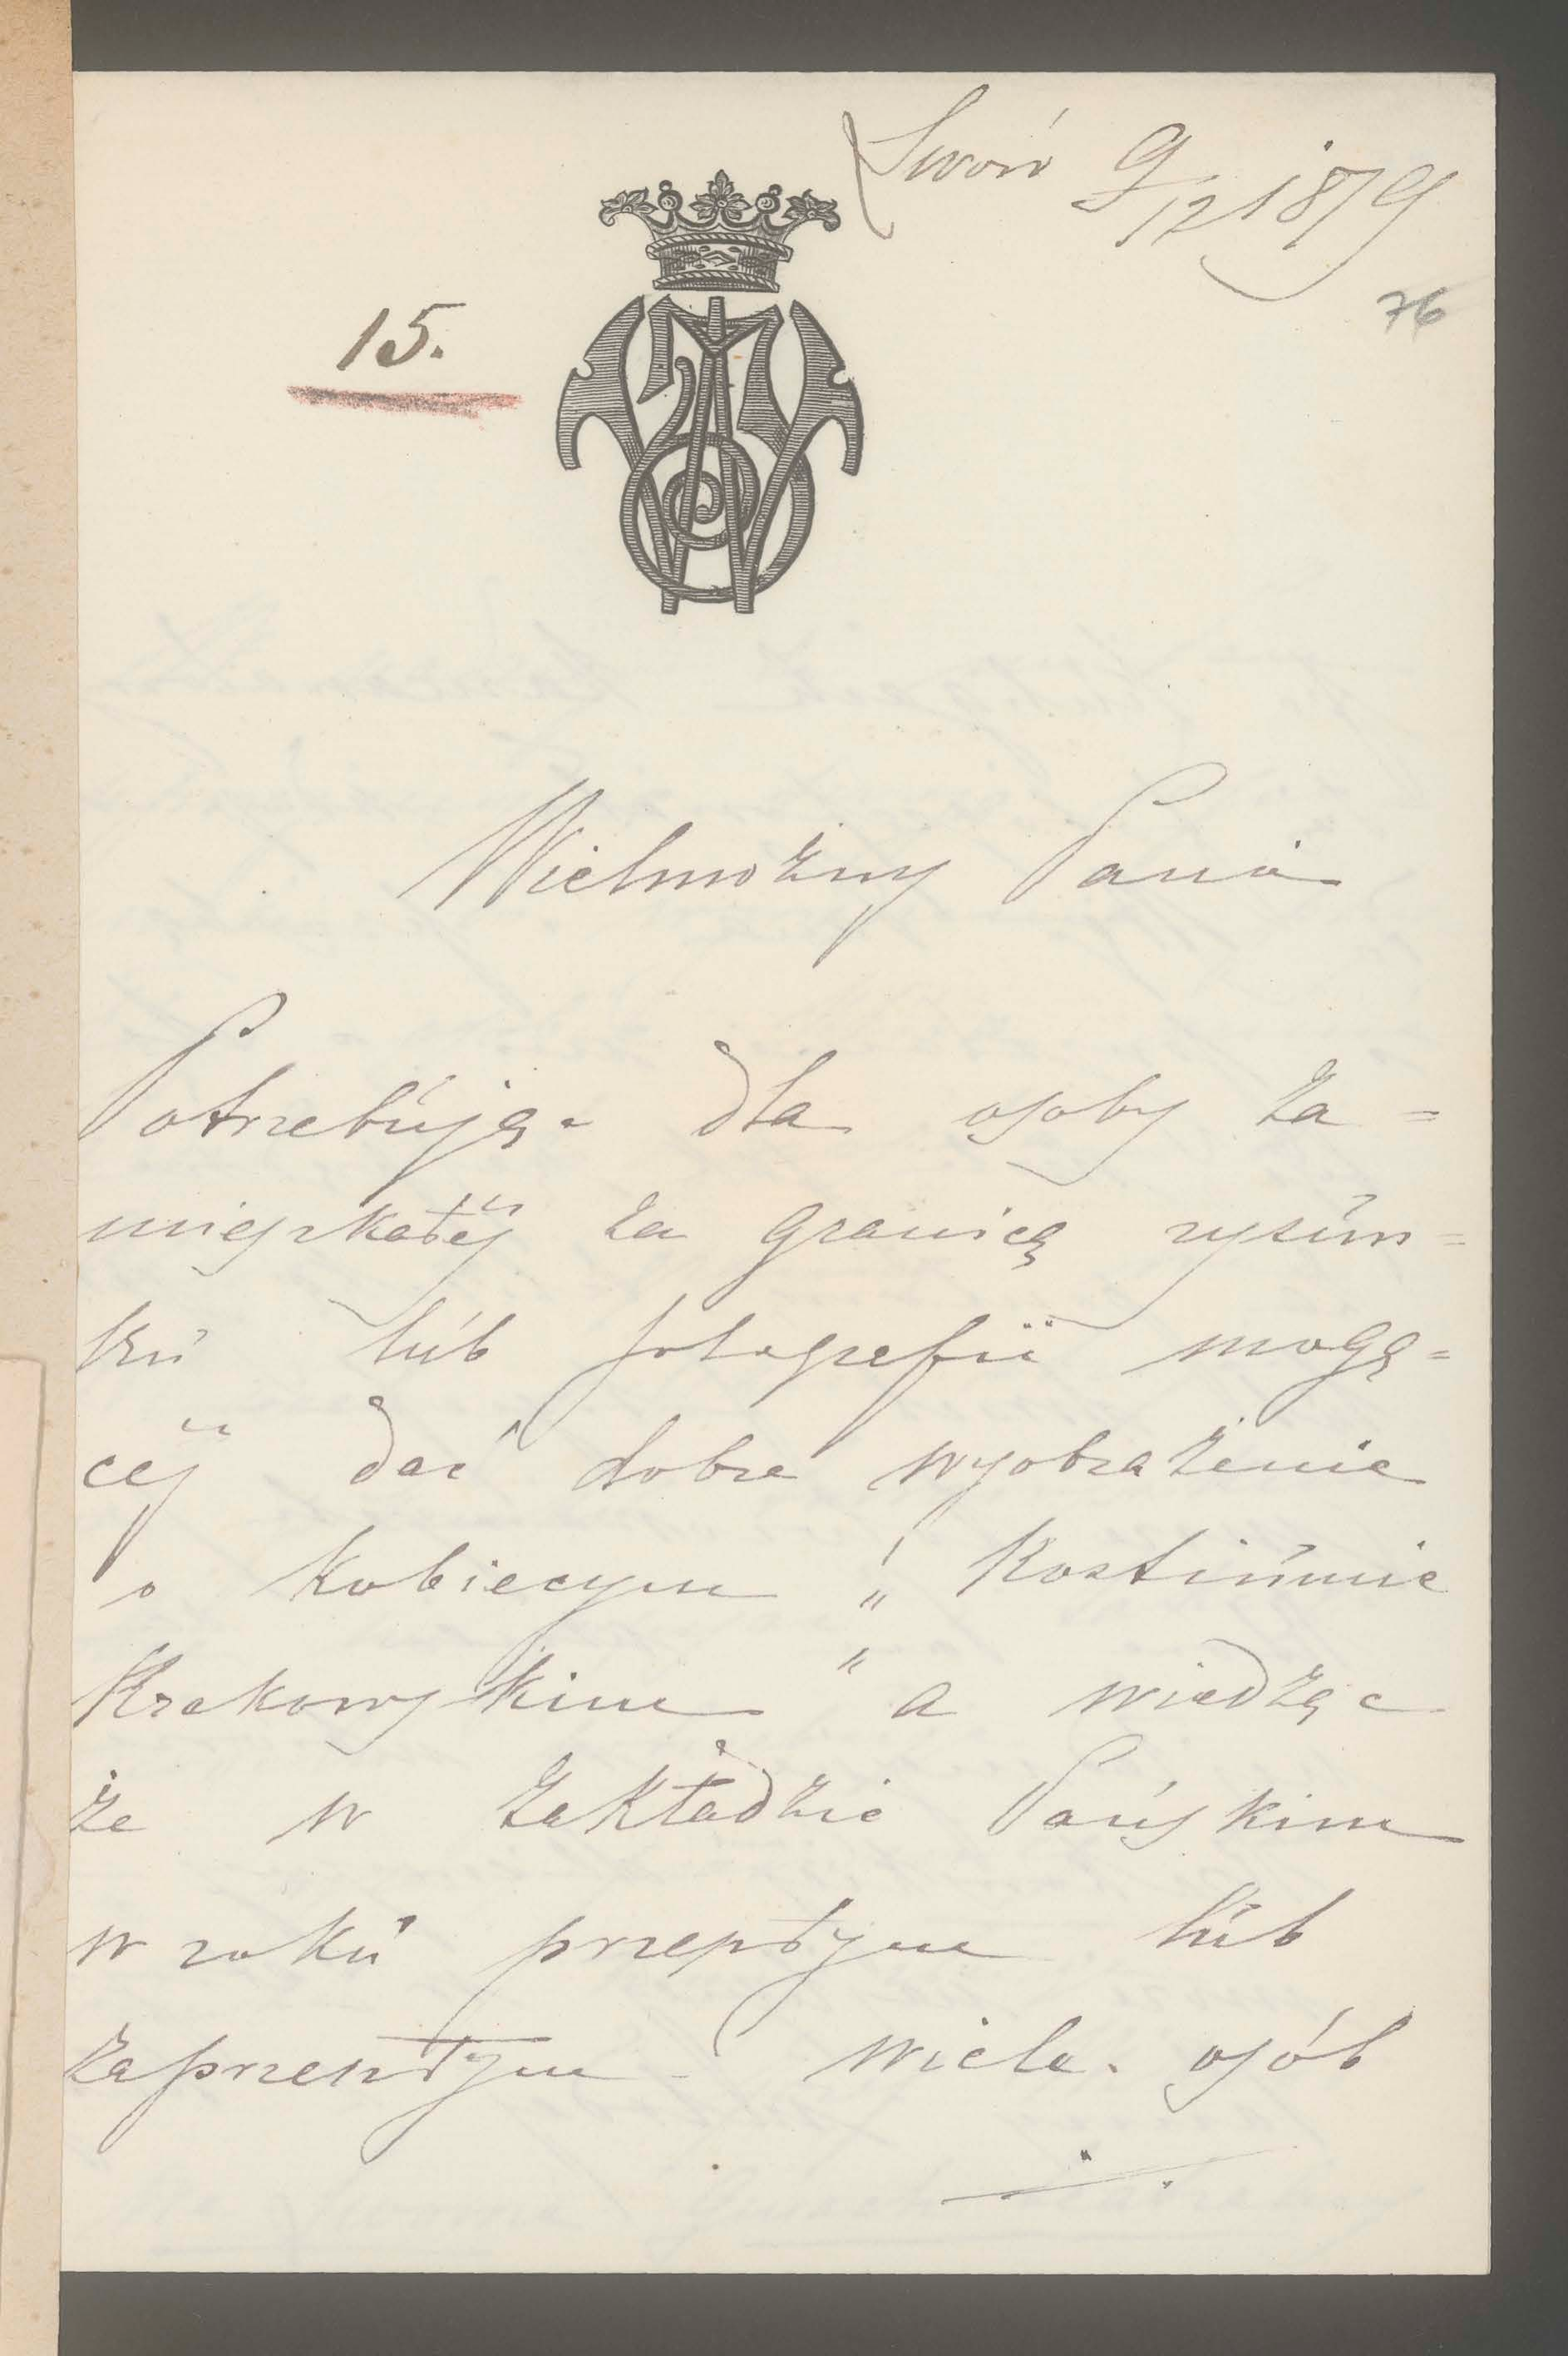 Lwów 9/12 1879
76
15.
Wielmożny Panie
Potrzebując dla osoby za=
mieszkałéj za granicą rysun=
ku lub fotografii mogą=
céj dać dobre wyobrażenie
o kobiecym „Kostiumie
Krakowskim" a wiedząc
że w zakładzie Pańskim
w roku przeszłym lub
zaprzeszłym wiele osób